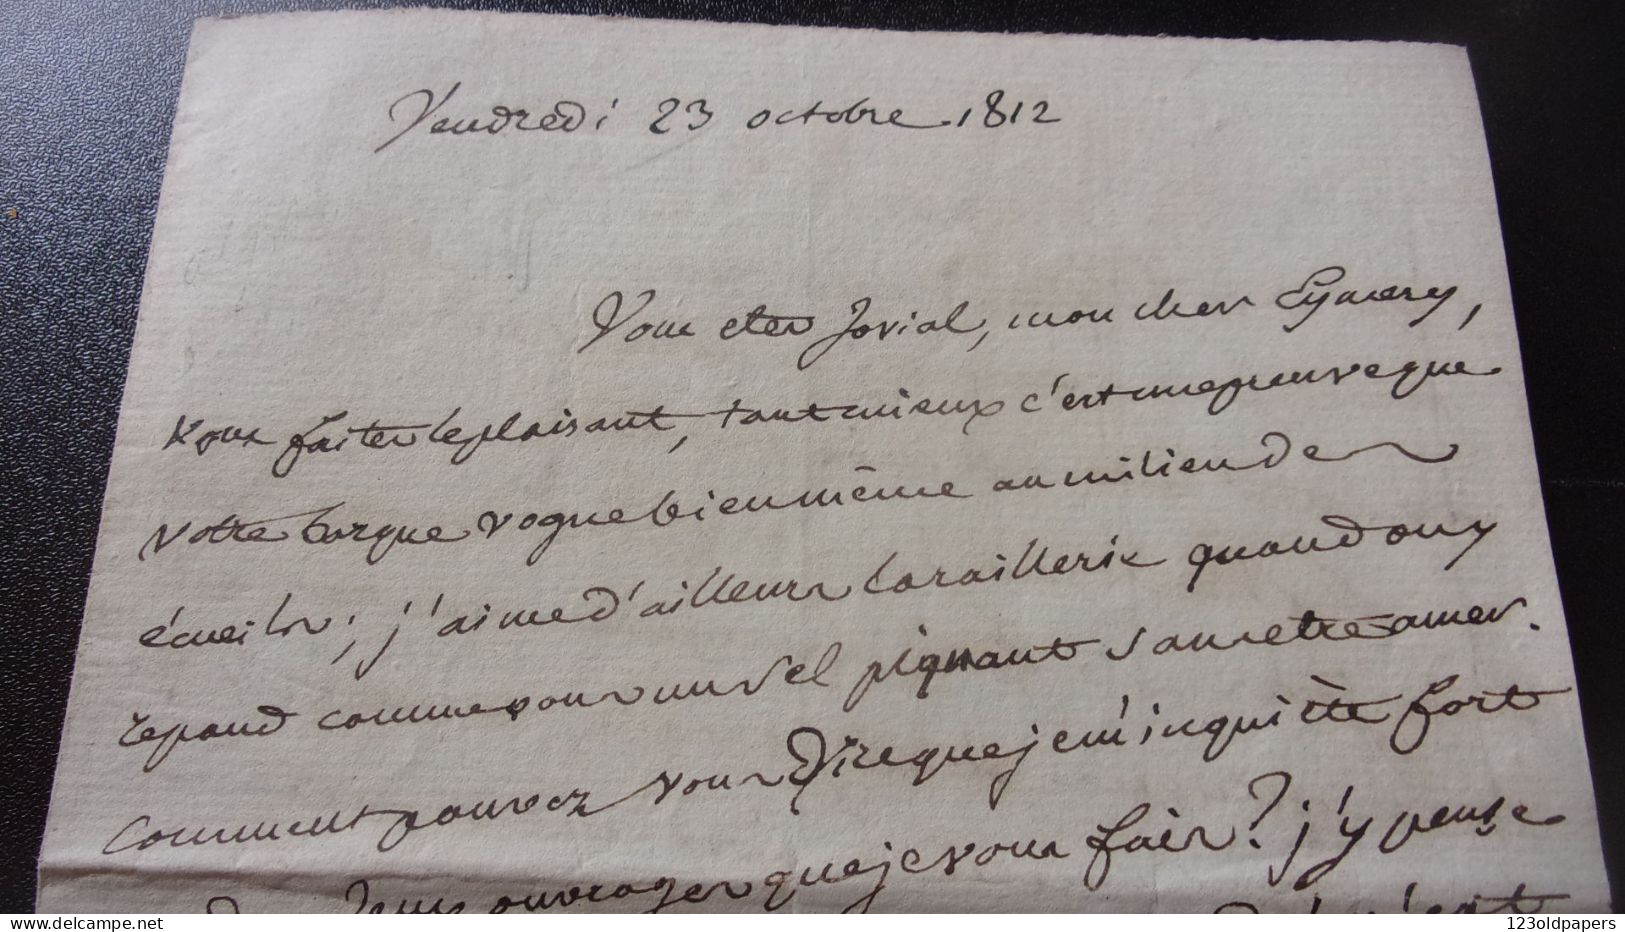 Vendredi 23 octobre 1812
Vous etes Jovial, mon cher Eymery,
vous faites le plaisant, tant mieux c'est une preuve que
votre barque vogue bien même au milieu des
écueils; j'aime d'ailleurs la raillerie quand on y
repand comme vous un sel piquant sans etre amer.
comment pouvez vous Dire que je m'inquiète fort
ouvrages que je vous fais? j'y pense
123oldpapers